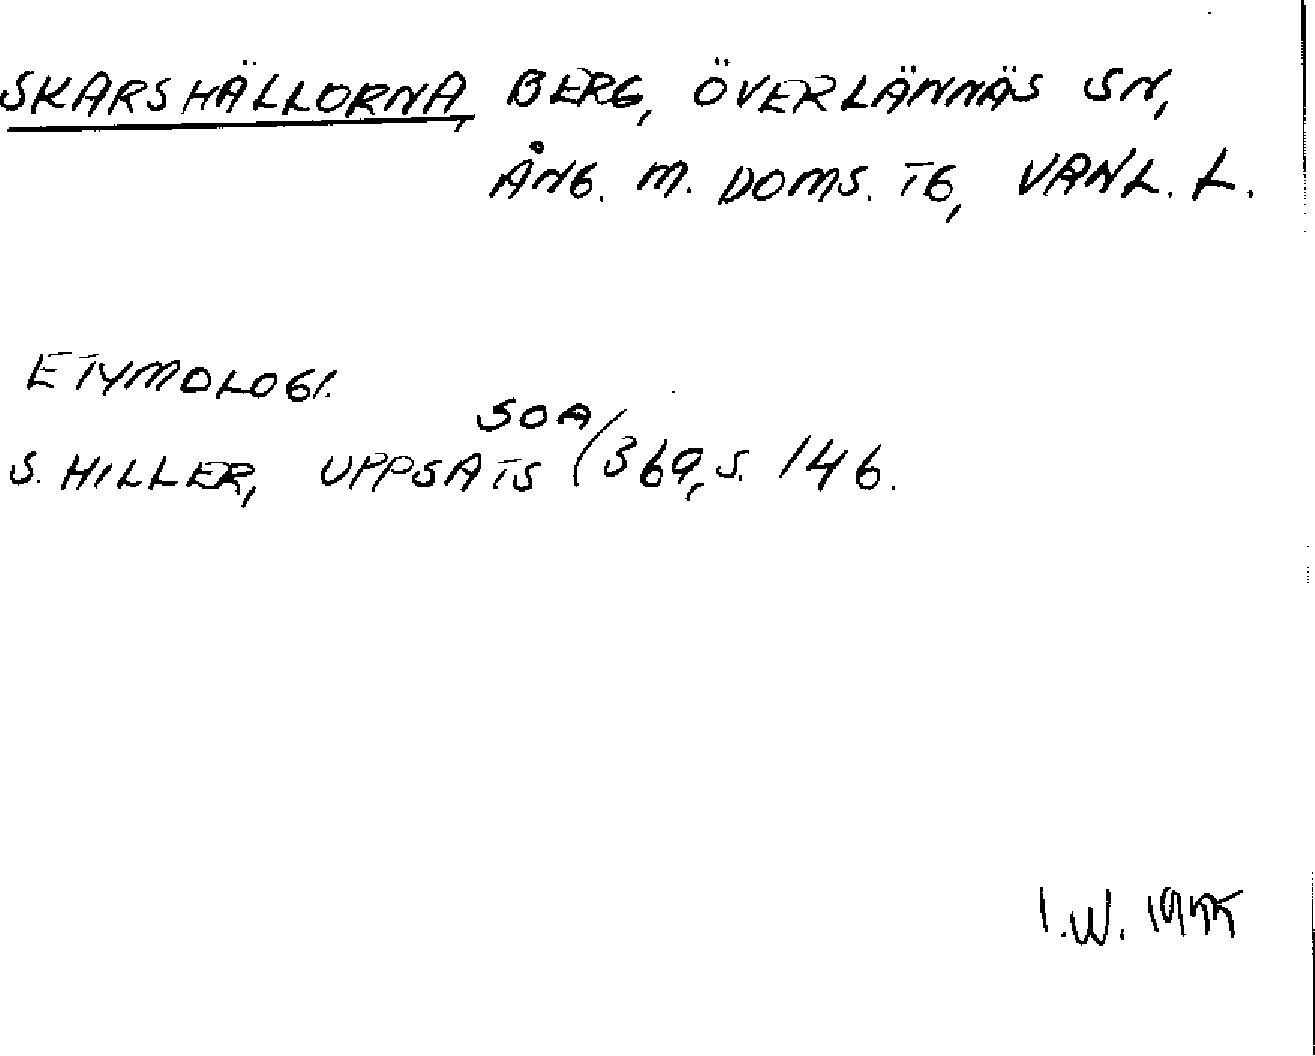 SKARSHÄLLORNA, BERG, ÖVERLÄNNÄS SN,
ÅNG. M. DOMS. TG, VÄNL. L.
ETYMOLOGI.
S. HILLER, UPPSATS SOA/369, S. 146.
I.W.